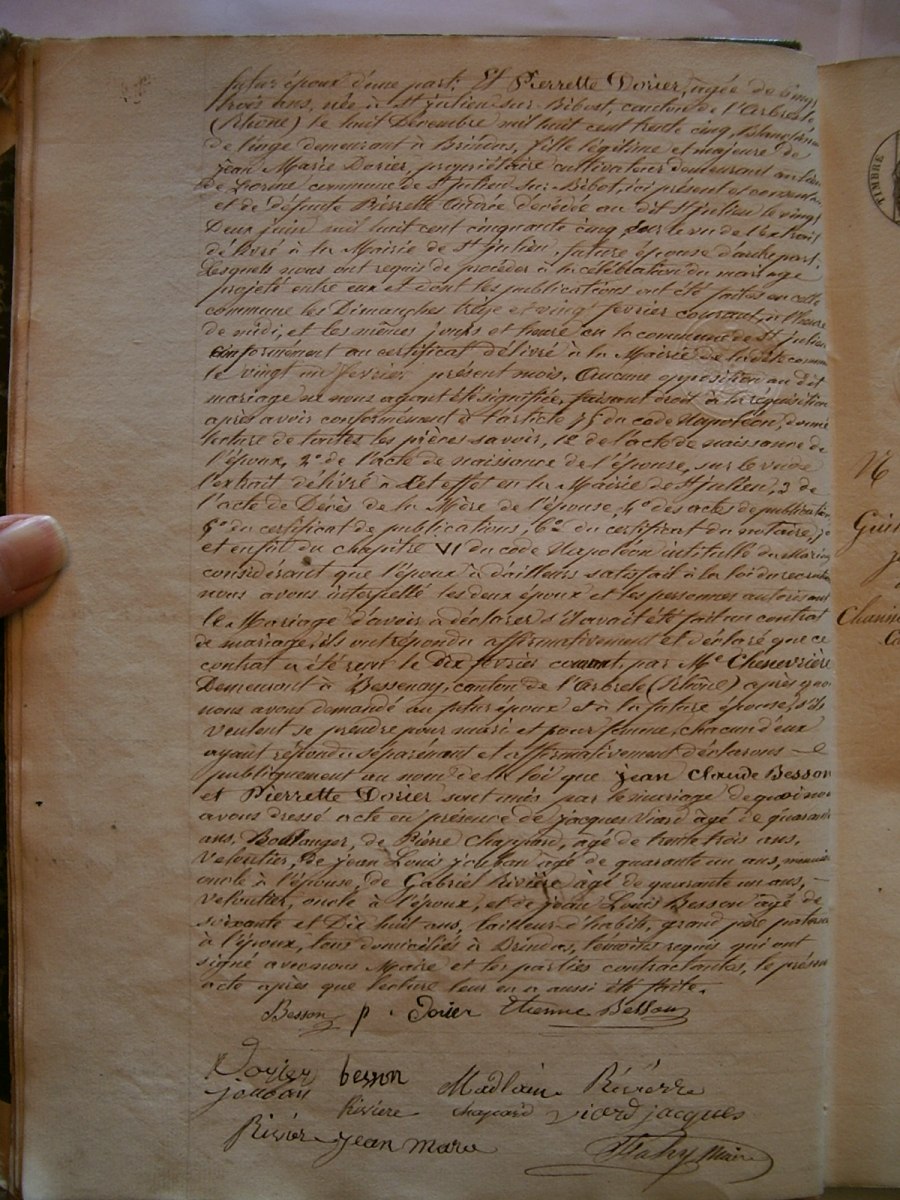 futur époux d'une part. Et Pierrette Dorier, agée de vingt
trois ans, née à St julien sur Bibost, canton de l'Arbresle
(Rhône) le huit Décembre mil huit cent trente cinq, blanchisseuse
de linge demeurant à Brindas, fille légitime et majeure de
jean Marie Dorier, propriétaire cultivateur demeurant au lieu
de commune de St julien sur Bibost, ici présent et consentant
et de défunte Pierrette décédée au dit St julien le vingt
Deux juin mil huit cent cinquante cinq sur le vu de l'extrait
délivré à la Mairie de St julien, future épouse d'autre part.
Lesquels nous ont requis de procéder à la célébration du mariage
projeté entre eux et dont les publications ont été faites en cette
commune les Dimanches treize et vingt février courant, à l'heure
de midi, et les mêmes jours et heure en la commune de St julien
conformément au certificat délivré à la Mairie de la dite commune
le vingt un février présent mois. Aucune opposition au dit
mariage ne nous ayant été signifiée, faisant droit à la réquisition
après avoir conformément à l'article 75 du code Napoléon, donné
lecture de toutes les pièces savoir, 1e de l'acte de naissance de
l'époux, 2° de l'acte de naissance de l'épouse, sur le vu de
l'extrait délivré à cet effet en la Mairie de St julien, 3 de
l'acte de Décès de la Mère de l'épouse, 4° des actes de publication
5° du certificat de publications, 6° du certificat du notaire,
et enfin du chapitre VI du code Napoléon intitulé du Mariage
considérant que l'époux a d'ailleurs satisfait à la loi du recrutement
nous avons interpellé les deux époux et les personnes autorisant
le Mariage d'avoir à déclarer s'il avait été fait un contrat
de mariage, ils ont répondu affirmativement et déclaré que ce
contrat a été reçu le dix février courant, par Me Chenevrière
Demeurant à Bessenay, canton de l'Arbresle (Rhône) après quoi
nous avons demandé au futur époux et à la future épouse, s'ils
veulent se prendre pour mari et pour femme, chacun d'eux
ayant répondu séparément et affirmativement déclarons
publiquement au nom de la loi que jean Claude Besson
et Pierrette Dorier sont unis par le mariage de quoi nous
avons dressé acte en présence de jacques Viard agé de quarante
ans, Boulanger, de Pierre Chappard, agé de trente trois ans,
Veloutier, De jean Louis agé de quarante un ans,
oncle à l'épouse, de Gabriel Rivière agé de quarante un ans,
Veloutier, oncle à l'époux, et de jean Louis Besson agé de
soixante et Dix huit ans, tailleur d'habits, grand père paternel
à l'époux, tous domiciliés à Brindas, témoins requis qui ont
signé avec nous Maire et les parties contractantes, le présent
acte après que lecture leur en a aussi été faite.
Besson p. Dorier Etienne Besson
Dorier besson Madlaine Rivierre
Rivière chapard viard jacques
Rivière jean mare
Maire
TIMBRE
N